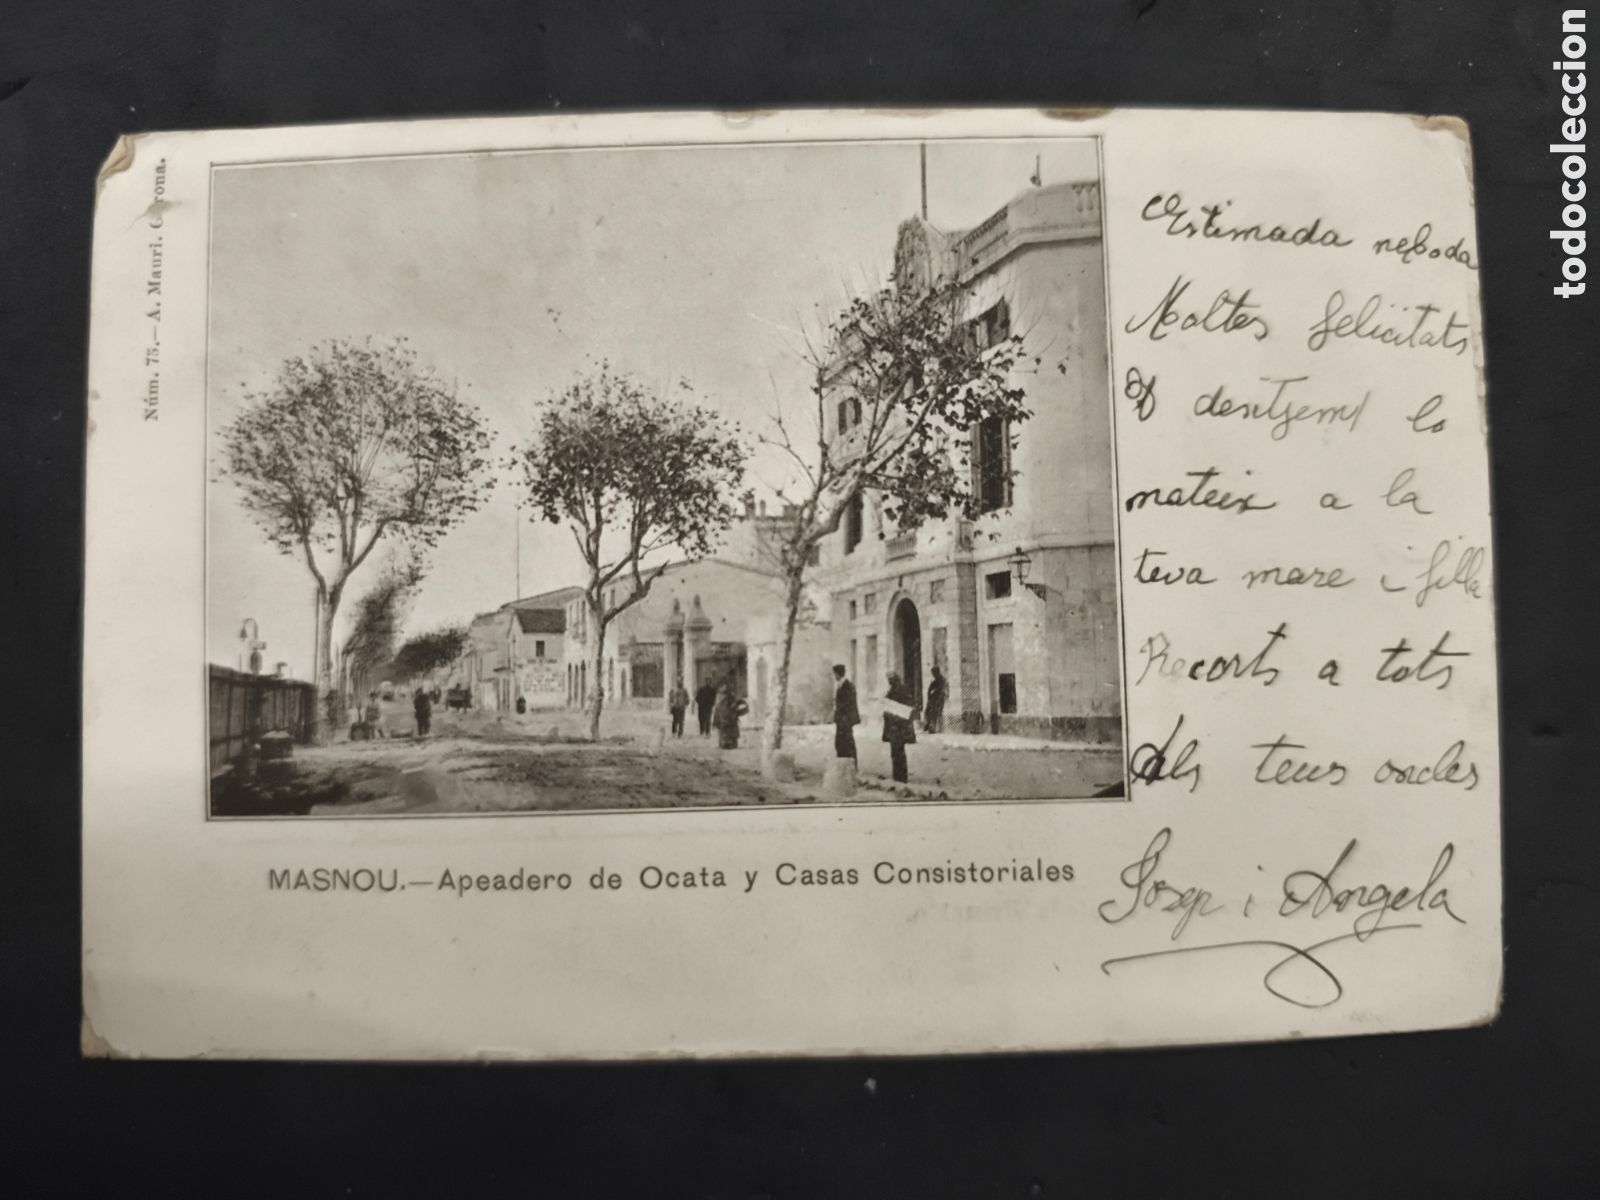 Núm. 75.—A. Mauri. Gerona.
Estimada neboda
Moltes felicitats
desitjem lo
mateix a la
teva mare i filla
Recorts a tots
dels teus oncles
Josep i Angela
MASNOU.—Apeadero de Ocata y Casas Consistoriales
todocoleccion